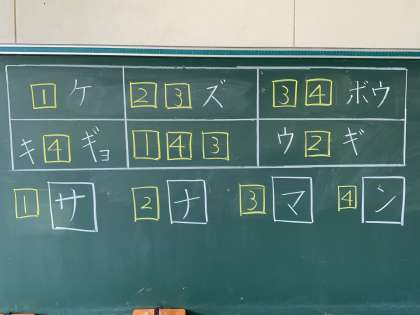 1ケ 23ズ 34ボウ
キ4ギョ 143 ウ2ギ
1サ 2ナ 3マ 4ン